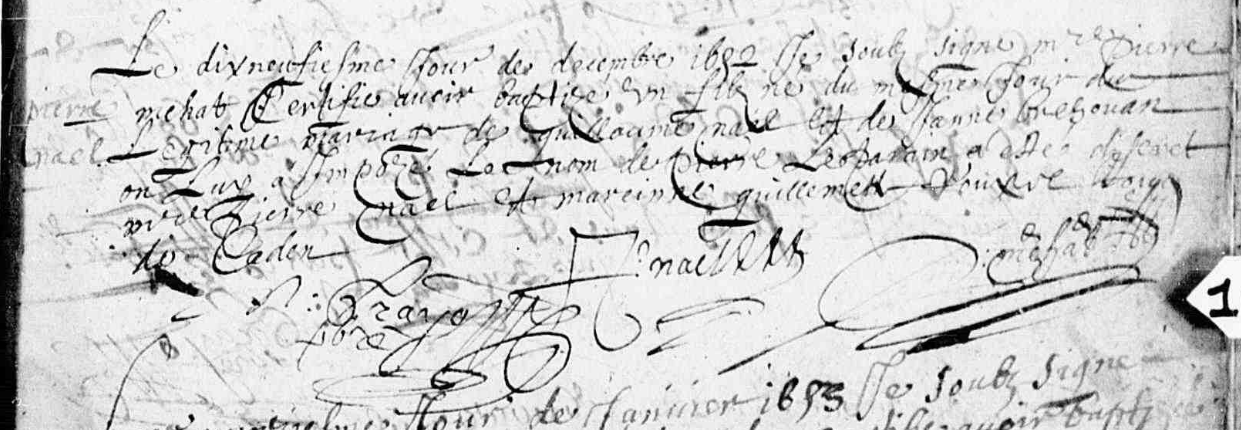 Le dixneufiesme Jour de decembre 1652 Je soubz signe mre Pierre
pierre
mehat Certifie avoir baptize un filz né du mesme Jour du
nael
Legitime mariage de guillaume nael et de Janne
on Luy a Impozé Le nom de Pierre Le parain a esté discret
mre Pierre nael et mareinne guillemette
de Caden
P. nael
mehat
pbre
Jour de Janvier 1653 Je soubz signe
avoir baptizé
1